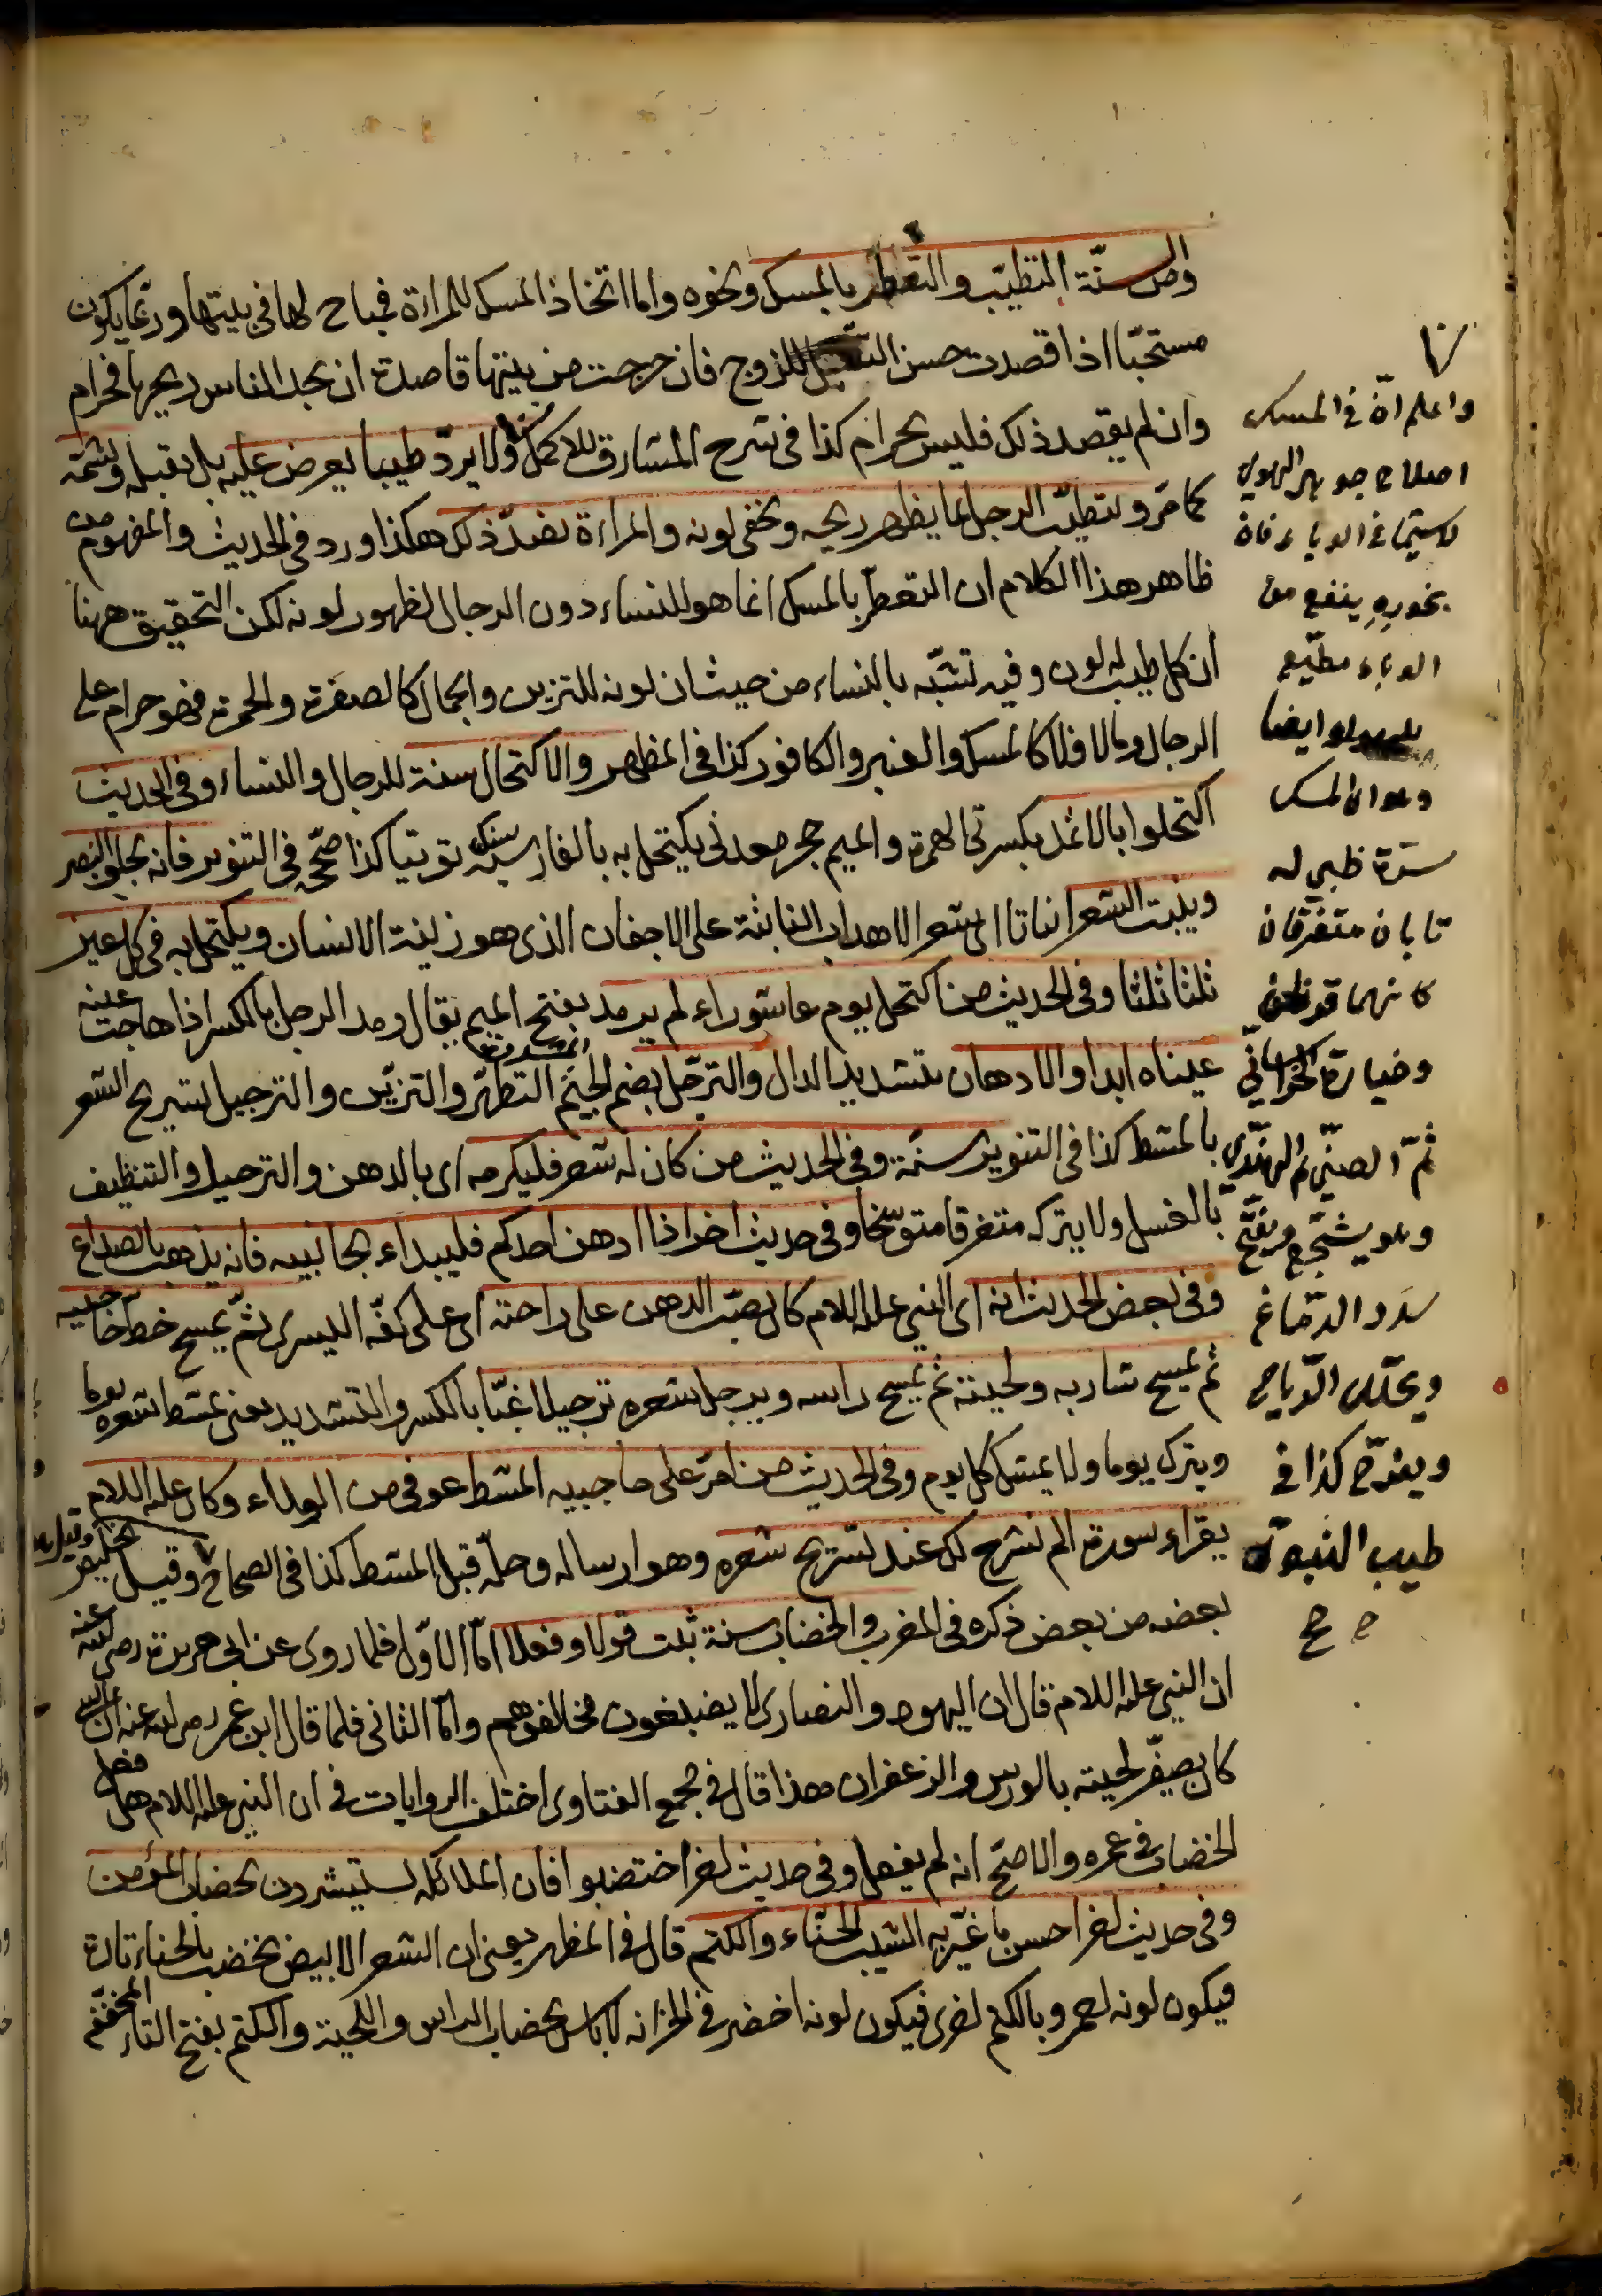 ومن سنّة التطيّب والتعطّر بالمسك ونحوه واما اتخاذ المسك للمراءة فمباح لها في بيتها وربّما يكون
مستحبّا اذا قصدت حسن التبعّل للزوج فان خرجت من بيتها قاصدة ان يجد الناس ريحها فحرام
وان لم يقصد ذلك فليس بحرام كذا في شرح المشارق للاكمل ولا يردّ طيبا يعرض عليه بل يقبله ويشمّه
كما مرّ ويتطيّب الرجل بما يظهر ريحه ويخفى لونه والمراءة بضدّ ذلك هكذا ورد في الحديث والمفهوم من
ظاهر هذا الكلام ان التعطّر بالمسك انما هو للنساء دون الرجال لظهور لونه لكن التحقيق ههنا
ان كل طيب له لون وفيه تشبّه بالنساء من حيث ان لونه للتزين والجمال كالصفرة والحمرة فهو حرام على
الرجال وما لا فلا كالمسك والعنبر والكافور كذا في المظهر والاكتحال سنة للرجال والنساء وفي الحديث
اكتحلوا بالاثمد بكسرتي الهمزة والميم حجر معدني يكتحل به بالفارسية سنك توتيا كذا صحّحه في التنوير فانه يجلو البصر
وينبت الشعر انباتا اي شعر الاهداب النابتة على الاجفان الذي هو زينة الانسان ويكتحل به في كل عين
ثلثا ثلثا وفي الحديث من اكتحل يوم عاشوراء لم يرمد بفتح الميم يقال رمد الرجل بالكسر اذا هاجت عينه
عيناه ابدا والادهان بتشديد الدال والترجّل بضم الجيم المشددة التطهّر والتزيّن والترجيل تسريح الشعر
بالمشط كذا في التنوير سنّة وفي الحديث من كان له شعر فليكرمه اي بالدهن والترجيل والتنظيف
بالغسل ولا يتركه متفرقا متوسّخا وفي حديث اخر اذا ادهن احدكم فليبداء بحاجبيه فانه يذهب بالصداع
وفي بعض الحديث انه اى النبي عليه السلام كان يصبّ الدهن على راحته اى على كفّه اليسرى ثمّ يمسح حاجبيه
ثم يمسح شاربه ولحيته ثم يمسح راسه ويرجل شعره ترجيلا غبّا بالكسر والتشديد يعني يمشط شعره يوما
ويترك يوما ولا يمتشط كل يوم وفي الحديث من امرّ على حاجبيه المشط عوفى من الوباء وكان عليه السلام
يقراء سورة الم نشرح لك عند تسريح شعره وهو ارساله وحلّه قبل المشط كذا في الصحاح وقيل تخليص
بعضه من بعض ذكره في المغرب والخضاب سنة ثبت قولا وفعلا امّا الاوّل فلما روى عن ابي هريرة رضي الله عنه
ان النبي عليه السلام قال ان اليهود والنصارى لا يصبغون فخالفوهم وامّا الثاني فلما قال ابن عمر رضي الله عنه ان النبي
كان يصفّر لحيته بالورس والزعفران هذا قال في مجمع الفتاوى اختلف الروايات في ان النبي عليه السلام هل فعل
الخضاب في عمره والاصحّ انه لم يفعل وفي حديث اخر اختضبوا فان الملائكة يستبشرون بخضاب المؤمن
وفي حديث اخر احسن ما غيّر به الشيب الحنّاء والكتم قال في المظهر يعني ان الشعر الابيض يخضب بالحناء تارة
فيكون لونه احمر وبالكتم اخرى فيكون لونه اخضر في الخزانه لا باس بخضاب الراس واللحية والكتم بفتح التاء المخففة
واعلم انّ في المسك
اصلاح جوهر الهواء
لا سيّما في الوباء فان
بخوره ينفع من
الوباء
ايضا
وهو ان المسك
سرّة ظبي له
نابان متفرّقان
كانهما قرنان
وخياره الخراساني
ثمّ الصيني ثم الهندي
وهو يشجّع ويفتّح
سدد الدماغ
ويحلّل الرياح
ويفرّح كذا في
طب النبوة